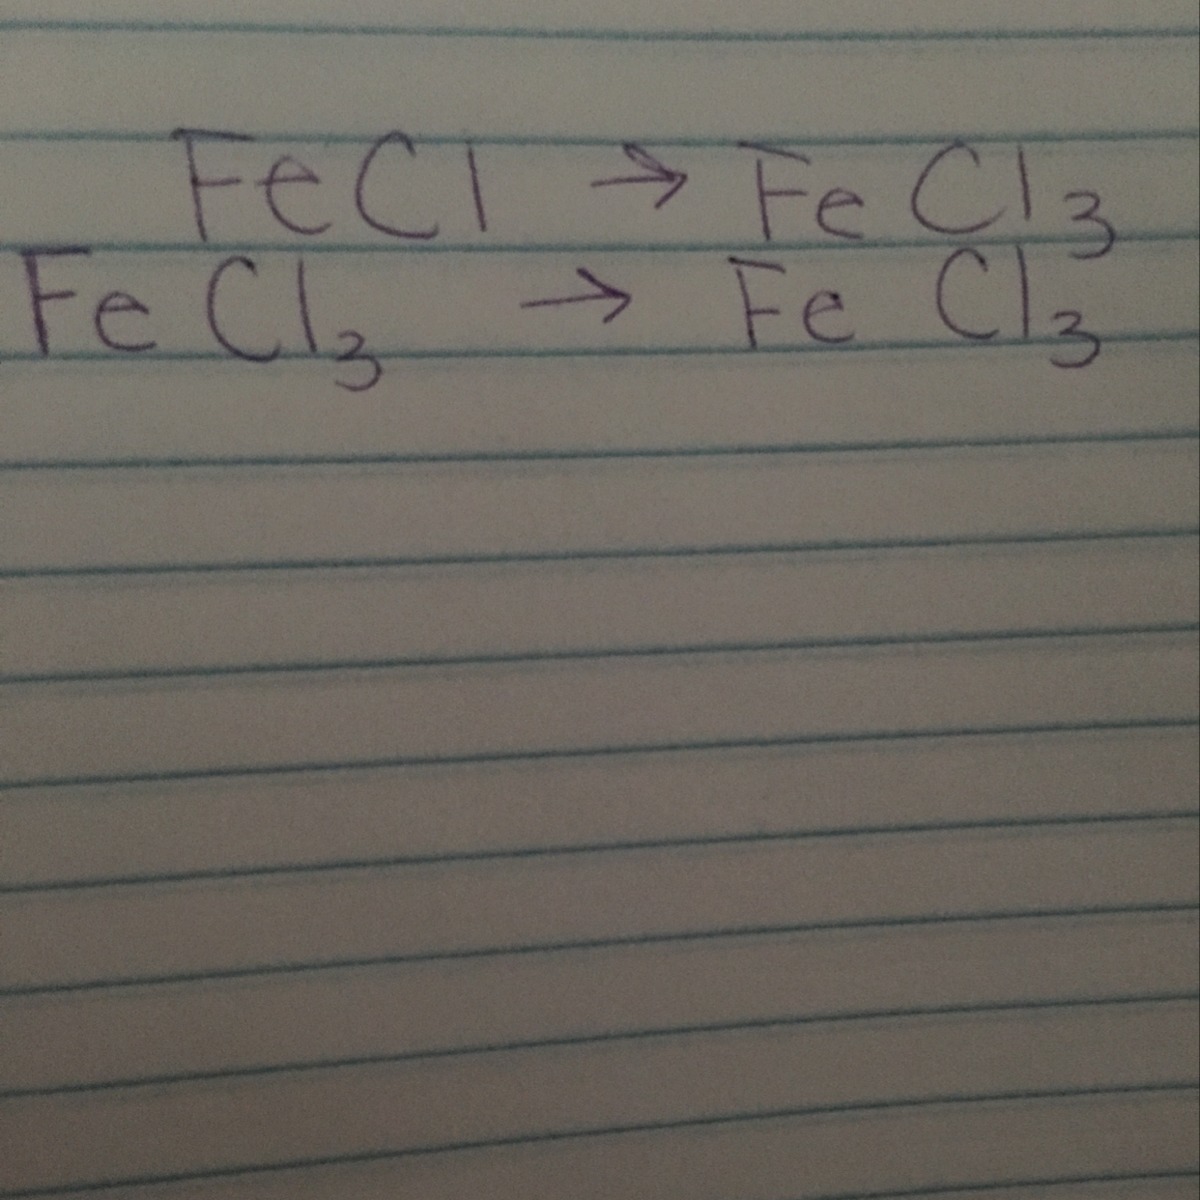 FeCl → FeCl₃
FeCl₃ → FeCl₃